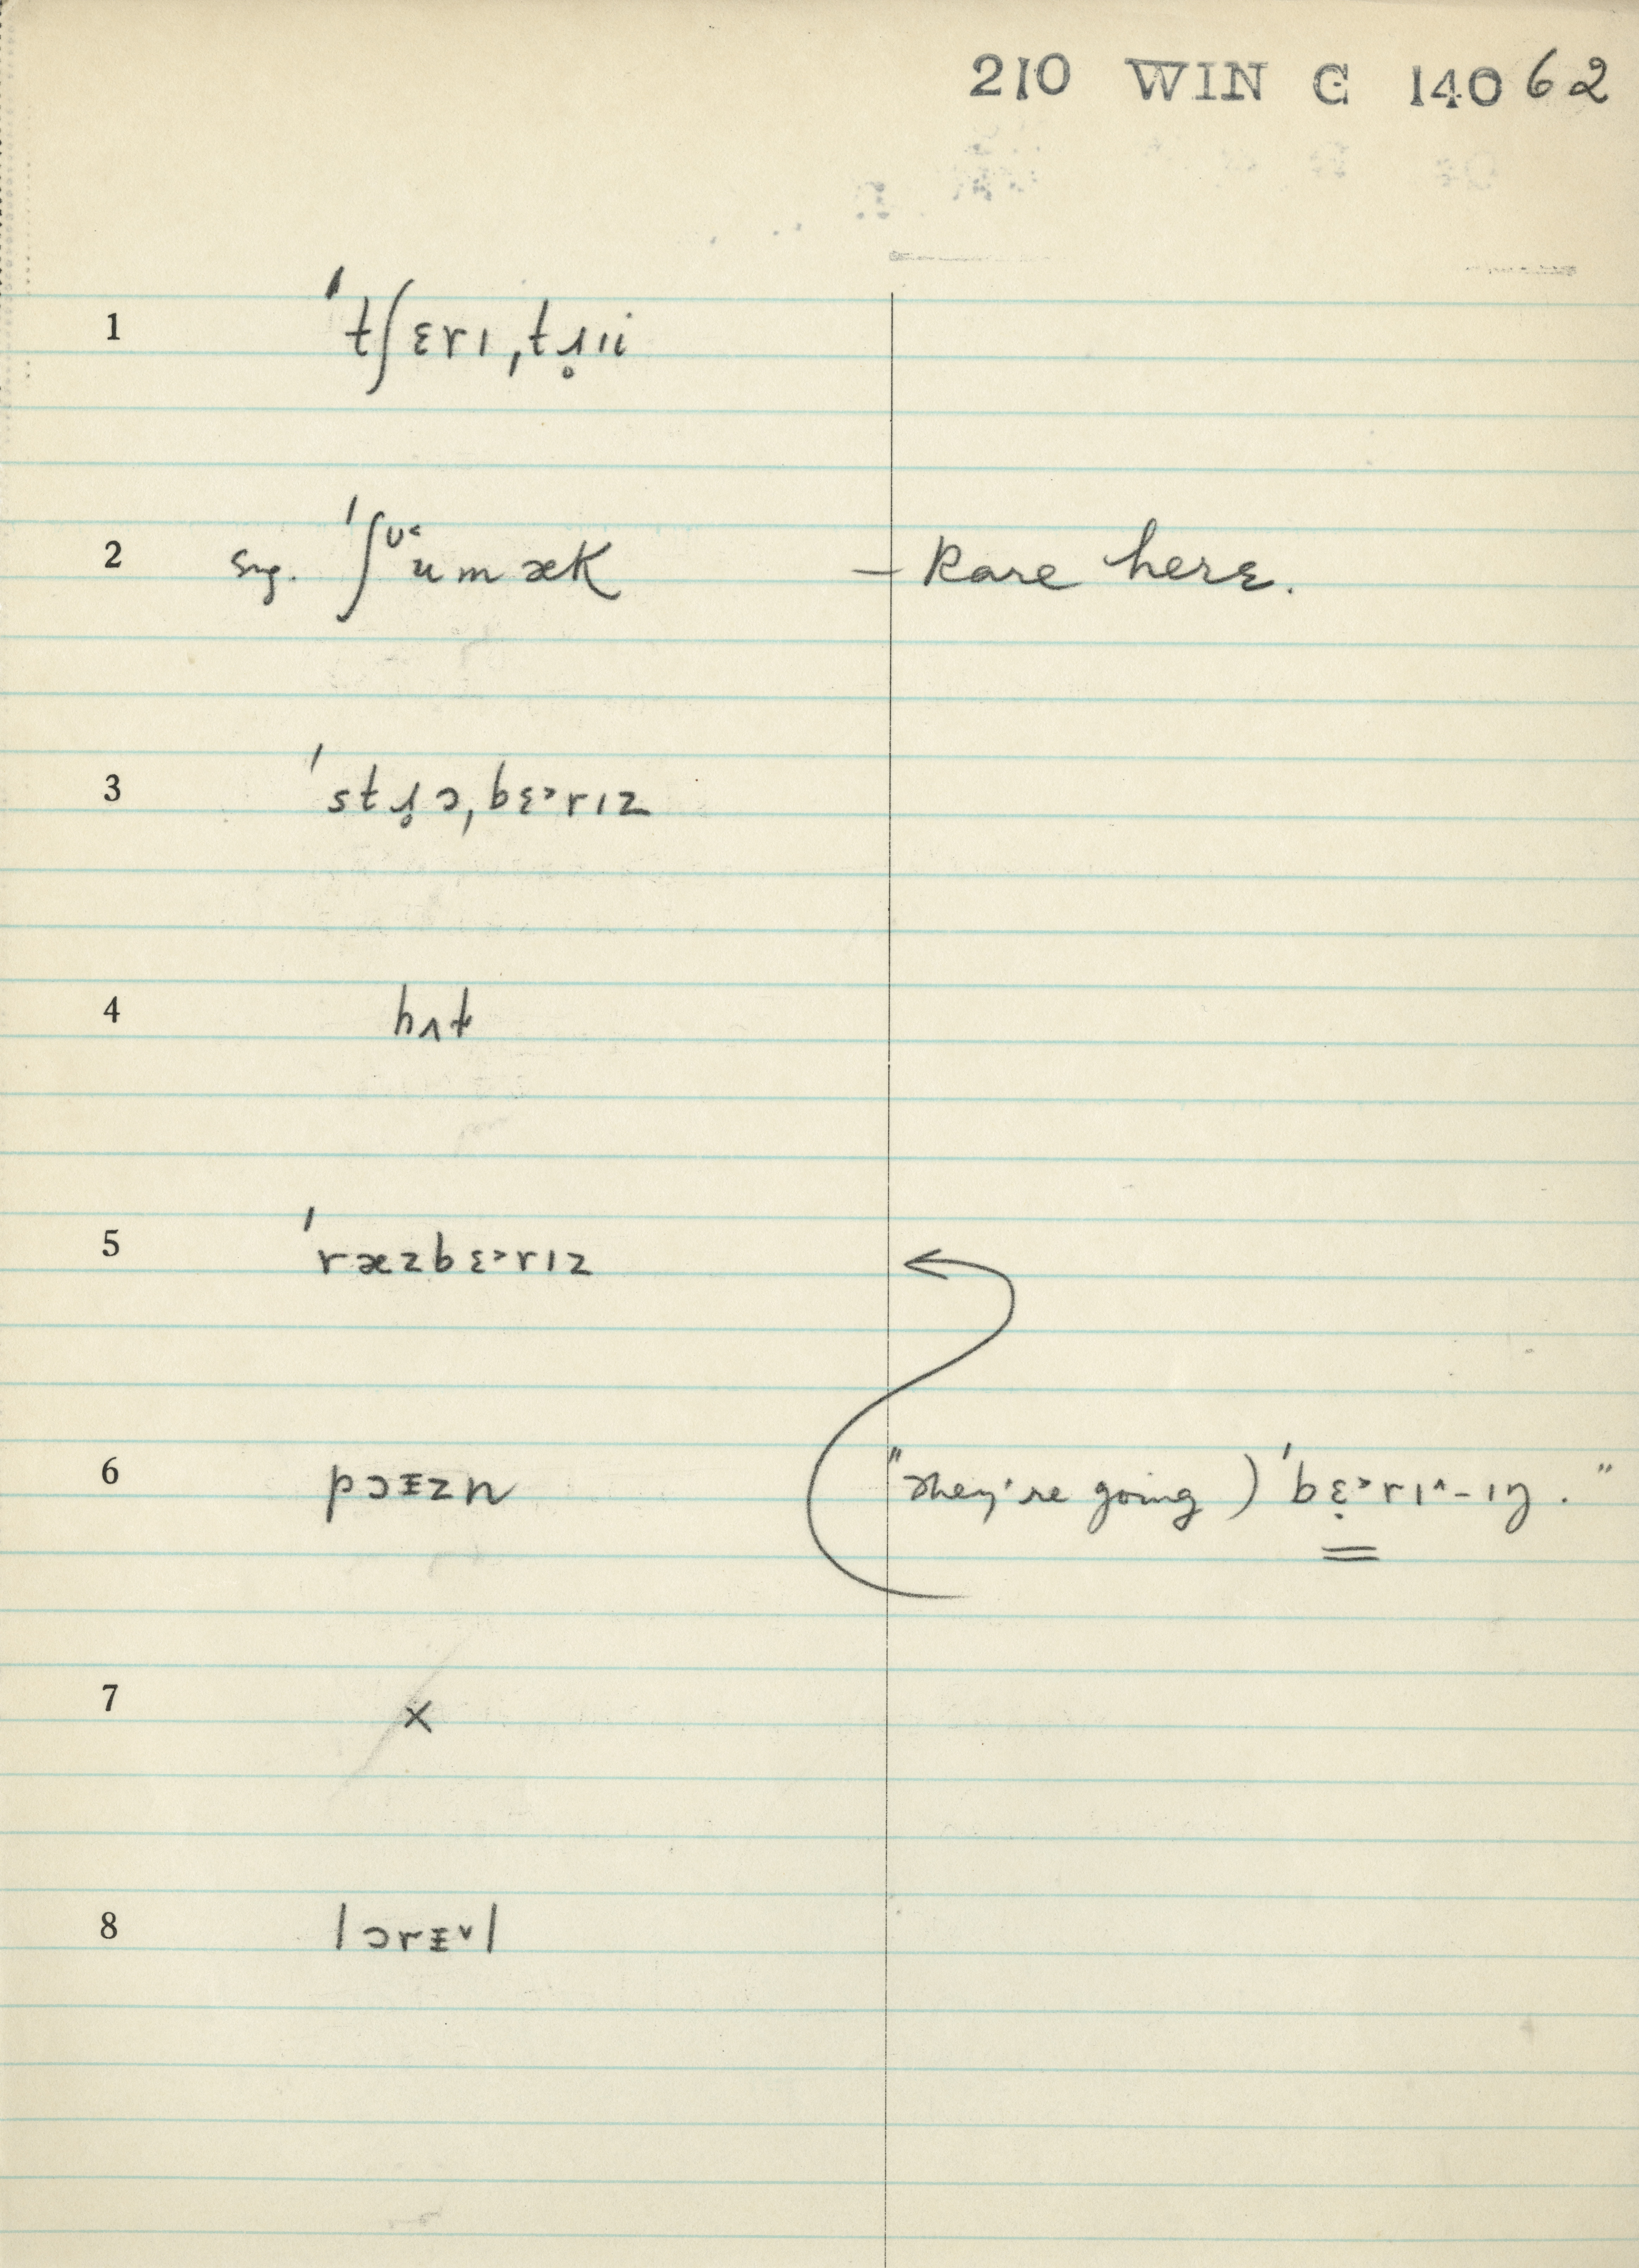 210 WIN C 14062
1 ˈtʃɛrɪˌtɹ̥ɪi
2 Sng. ˈʃᶷ˂umæk – Rare here.
3 ˈstɹ̥ɔˌbɛ˃rɪz
4 hʌt
5 ˈræzbɛ˃rɪz
6 pɔɪzn "they're going) ˈbɛ̣˃rɪ^-ɪŋ."
7 ×
8 lɔrɪ˅l